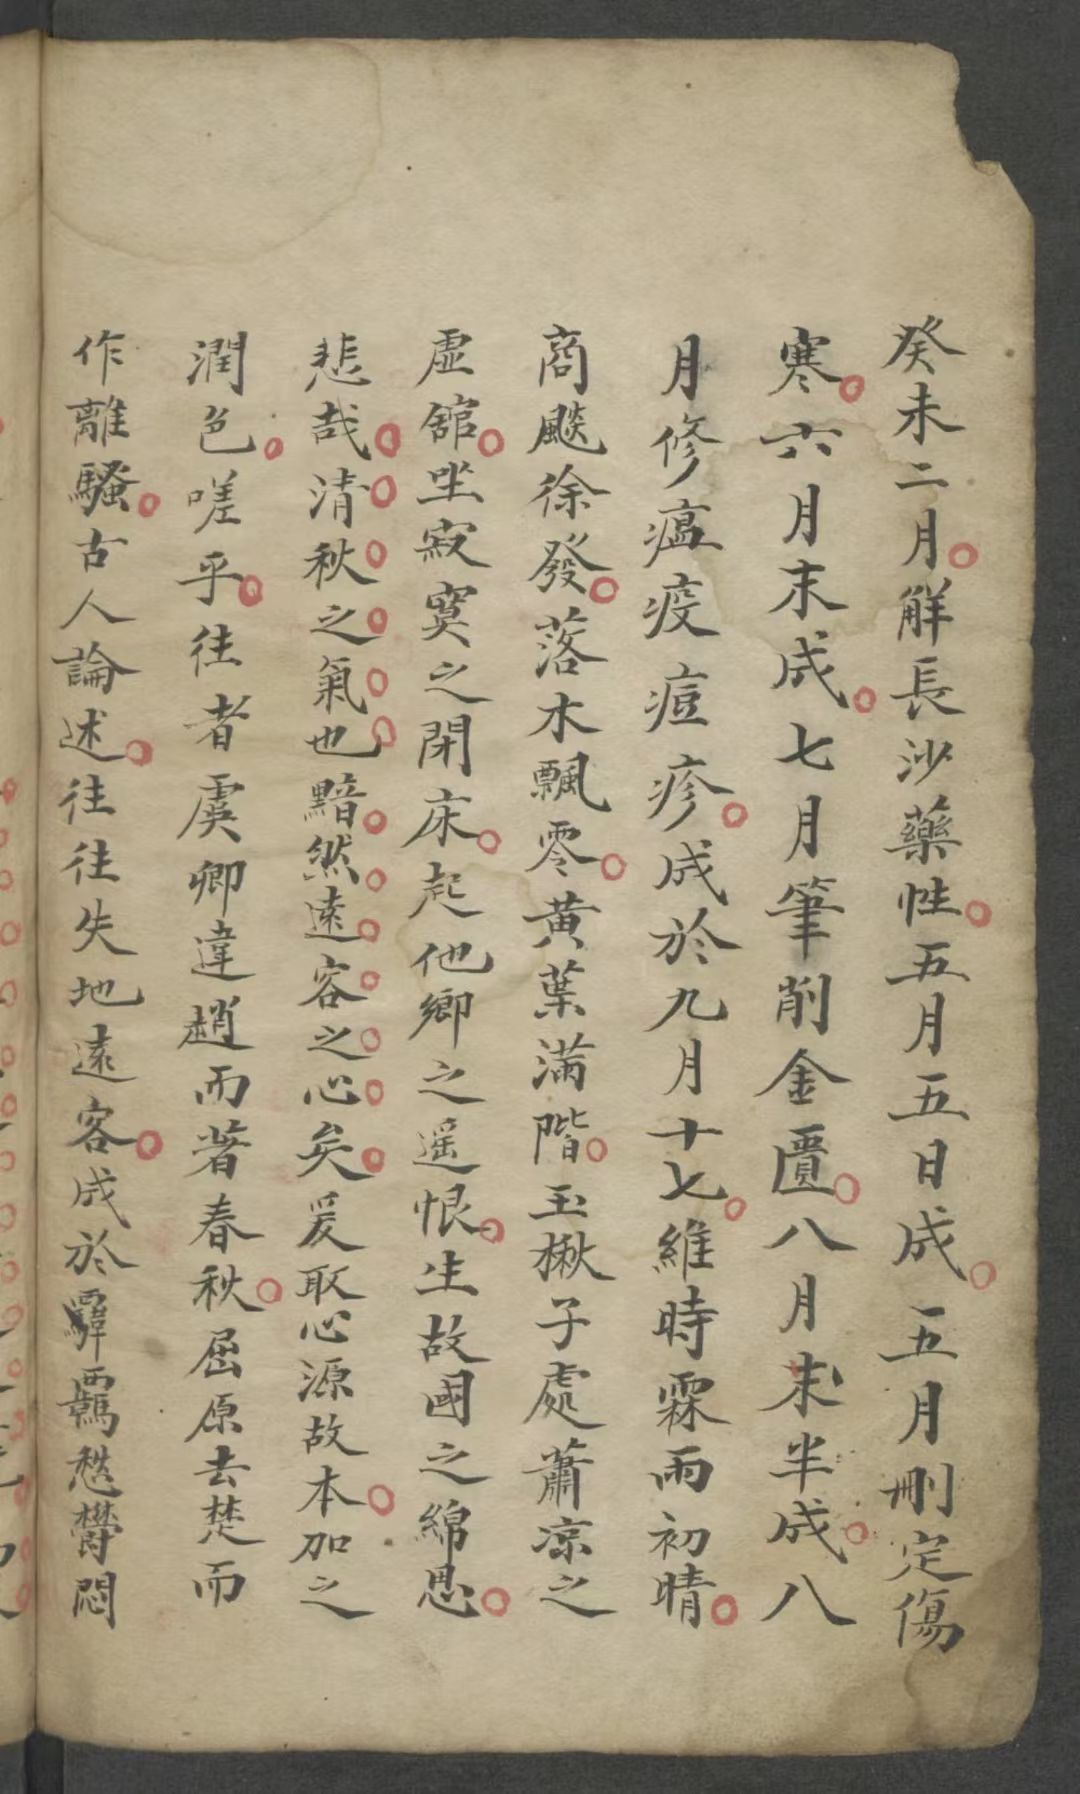 癸未二月解長沙藥性五月五日成五月刪定傷
寒六月末成七月筆削金匱八月末半成八
月修瘟疫痘疹成於九月十七維時霖雨初晴
商飈徐發落木飄零黄葉滿階玉楸子處蕭凉之
虛舘坐寂寞之閑床起他鄉之遥恨生故國之綿思
悲哉清秋之氣也黯然遠客之心矣爰取心源故本加之
潤色嗟乎往者虞卿違趙而著春秋屈原去楚而
作離騷古人論述往往失地遠客成於羈愁鬱悶